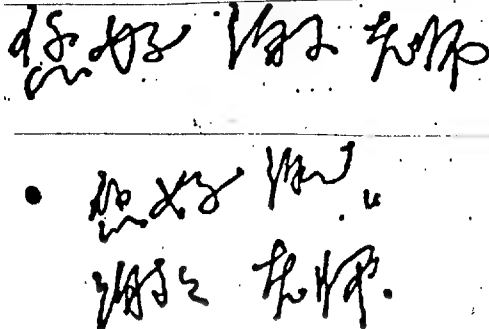 您好 谢谢 老师
您好 谢谢
谢谢 老师.